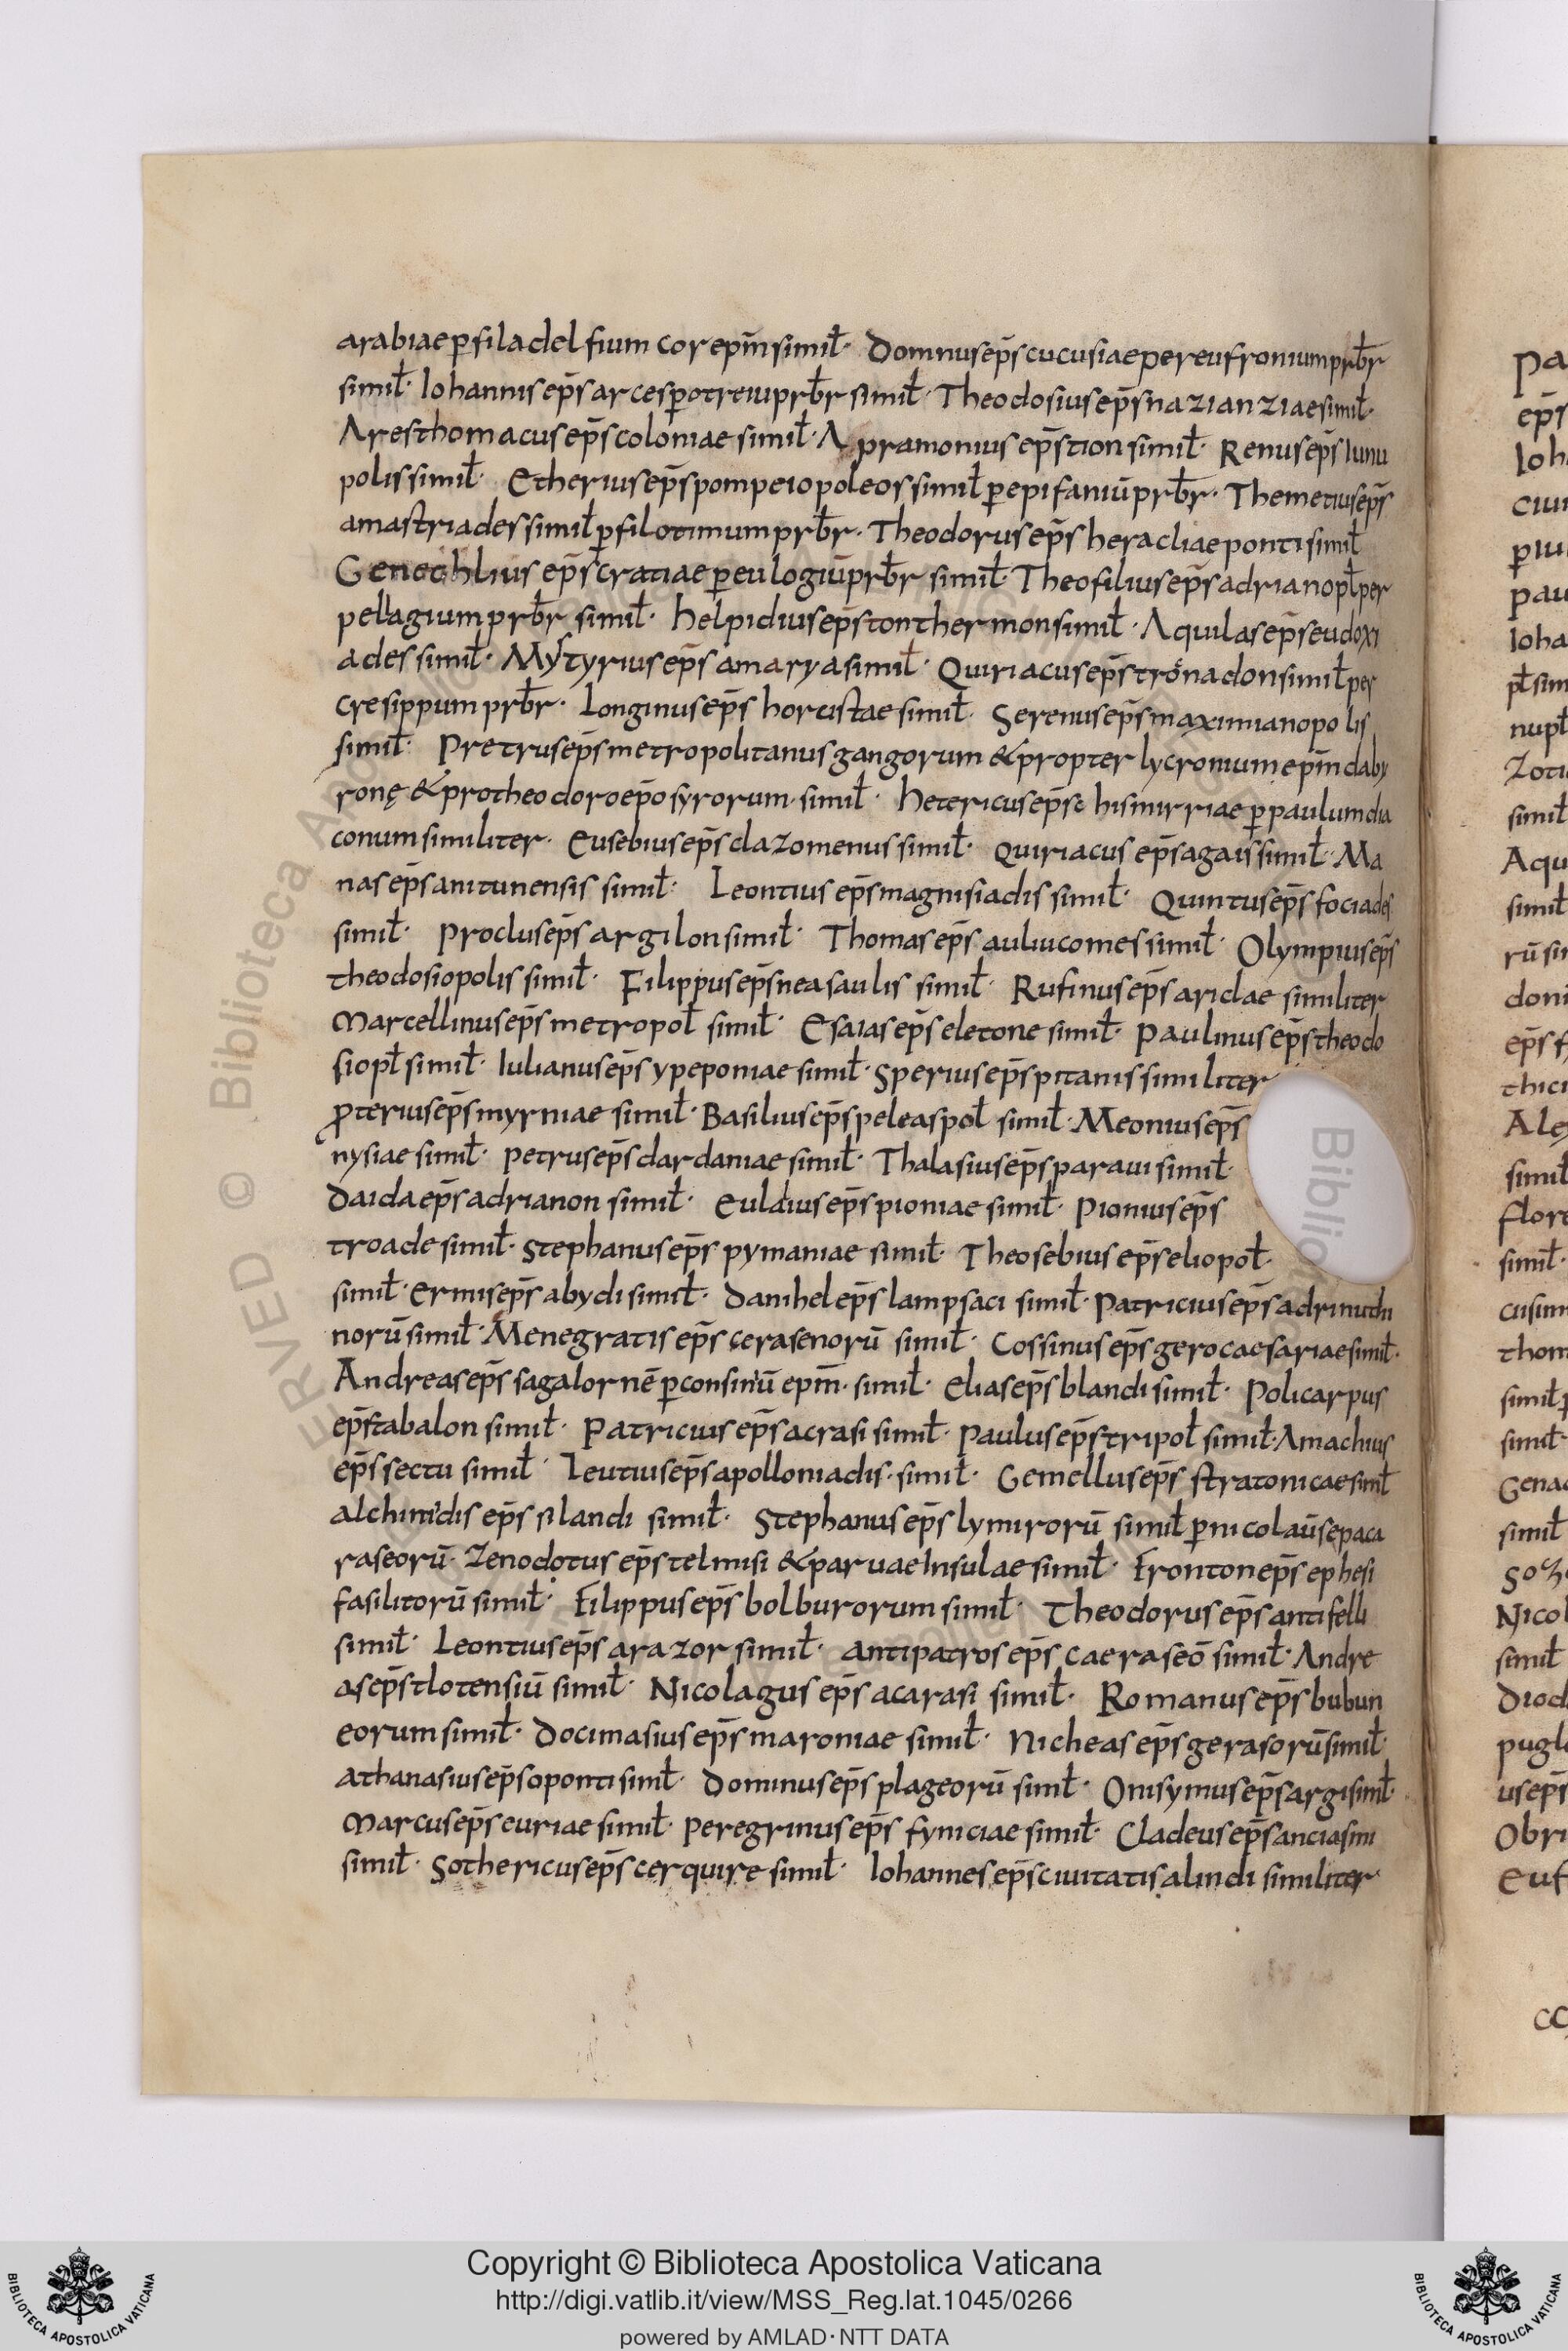 arabiae ꝑ siladelfium corepm̄ simil̄· Domnus ep̄s cucusiae per eufronium prb̄r
simil̄· Iohannis ep̄s arces ꝑ otreiu prb̄r simil̄· Theodosius ep̄s nazianziae simil̄·
Aresthomacus ep̄s coloniae simil̄· A pramonius ep̄s tion simil̄· Renus ep̄s Iunu
polis simil̄· Etherius ep̄s pompeiopoleos simil̄ ꝑ epifaniū prb̄r· Themetius ep̄s
amastriades simil̄ ꝑ filotimum prb̄r· Theodorus ep̄s heracliae ponti simil̄
Genechlius ep̄s cratiae ꝑ eulogiū prb̄r simil̄· Theofilius ep̄s adrianopl̄ per
pellagium prb̄r simil̄· helpidius ep̄s tonthermon simil̄· Aquilas ep̄s eudoxi
ades simil̄· Mystyrius ep̄s amarya simil̄· Quiriacus ep̄s tronadon simil̄ per
cresippum prb̄r· Longinus ep̄s horcistae simil̄· Serenus ep̄s maximianopolis
simil̄· Pretrus ep̄s metropolitanus gangorum & propter lycronium epm̄ daby
ronę & pro theodoro ep̄o syrorum· simil̄· hetericus ep̄s c hismirriae ꝑ paulum dia
conum similiter· Eusebius ep̄s clazomenus simil̄· quiriacus ep̄s agais simil̄· Ma
nas ep̄s anitunensis simil̄· Leontius ep̄s magnisiadis simil̄· Quintus ep̄s fociades
simil̄· Proclus ep̄s argilon simil̄· Thomas ep̄s auliucomes simil̄· Olympius ep̄s
theodosiopolis simil̄· Filippus ep̄s neasaulis simil̄· Rufinus ep̄s aridae similiter
Marcellinus ep̄s metropol̄ simil̄· Esaias ep̄s eletone simil̄· Paulinus ep̄s theodo
siopl̄ simil̄· Iulianus ep̄s ypeponiae simil̄· Sperius ep̄s pitanis similiter
ꝓterius ep̄s myrniae simil̄· Basilius ep̄s peleaspol̄ simil̄· Meonius ep̄s
nysiae simil̄· petrus ep̄s dardaniae simil̄· Thalasius ep̄s paraui simil̄·
Daida ep̄s adrianon simil̄· Euldius ep̄s pioniae simil̄· Pionius ep̄s
troade simil̄· Stephanus ep̄s pymaniae simil̄· Theosebius ep̄s eliopol̄·
simil̄· Ermis ep̄s abydi simil̄· Danihel ep̄s lampsaci simil̄· Patricius ep̄s adrinuthi
norū simil̄· Menegratis ep̄s cerasenorū simil̄· Cossinus ep̄s gerocaesariae simil̄·
Andreas ep̄s sagalor nē ꝑ consinū epm̄· simil̄· Elias ep̄s blandi simil̄· Policarpus
ep̄s tabalon simil̄· Patricius ep̄s acrasi simil̄· Paulus ep̄s tripol̄ simil̄· Amachius
ep̄s sectu simil̄· Leutius ep̄s apolloniadis· simil̄· Gemellus ep̄s stratonicae simil̄
alchimdis ep̄s silandi simil̄· Stephanus ep̄s lymirorū simil̄ ꝑ nicolaū sepaca
raseorū· Zenodotus ep̄s telmisi & paruae Insulae simil̄· Fronton ep̄s ephesi
fasilitorū simil̄· Filippus ep̄s bolburorum simil̄· Theodorus ep̄s antifelli
simil̄· Leontius ep̄s arazor simil̄· antipatros ep̄s caeraseō simil̄· Andre
as ep̄s tlotensiū simil̄· Nicolagus ep̄s acarasi simil̄· Romanus ep̄s bubun
eorum simil̄· Docimasius ep̄s maroniae simil̄· Nicheas ep̄s gerasorū simil̄·
athanasius ep̄s oponti simil̄· Dominus ep̄s plageorū simil̄· Onisymus ep̄s argi simil̄·
Marcus ep̄s euriae simil̄· Peregrinus ep̄s fyniciae simil̄· Cladeus ep̄s anciasmi
simil̄· Sothericus ep̄s cerquire simil̄· Iohannes ep̄s ciuitatis alindi similiter·
Copyright © Biblioteca Apostolica Vaticana
http://digi.vatlib.it/view/MSS_Reg.lat.1045/0266
powered by AMLAD·NTT DATA
BIBLIOTECA APOSTOLICA VATICANA
BIBLIOTECA APOSTOLICA VATICANA